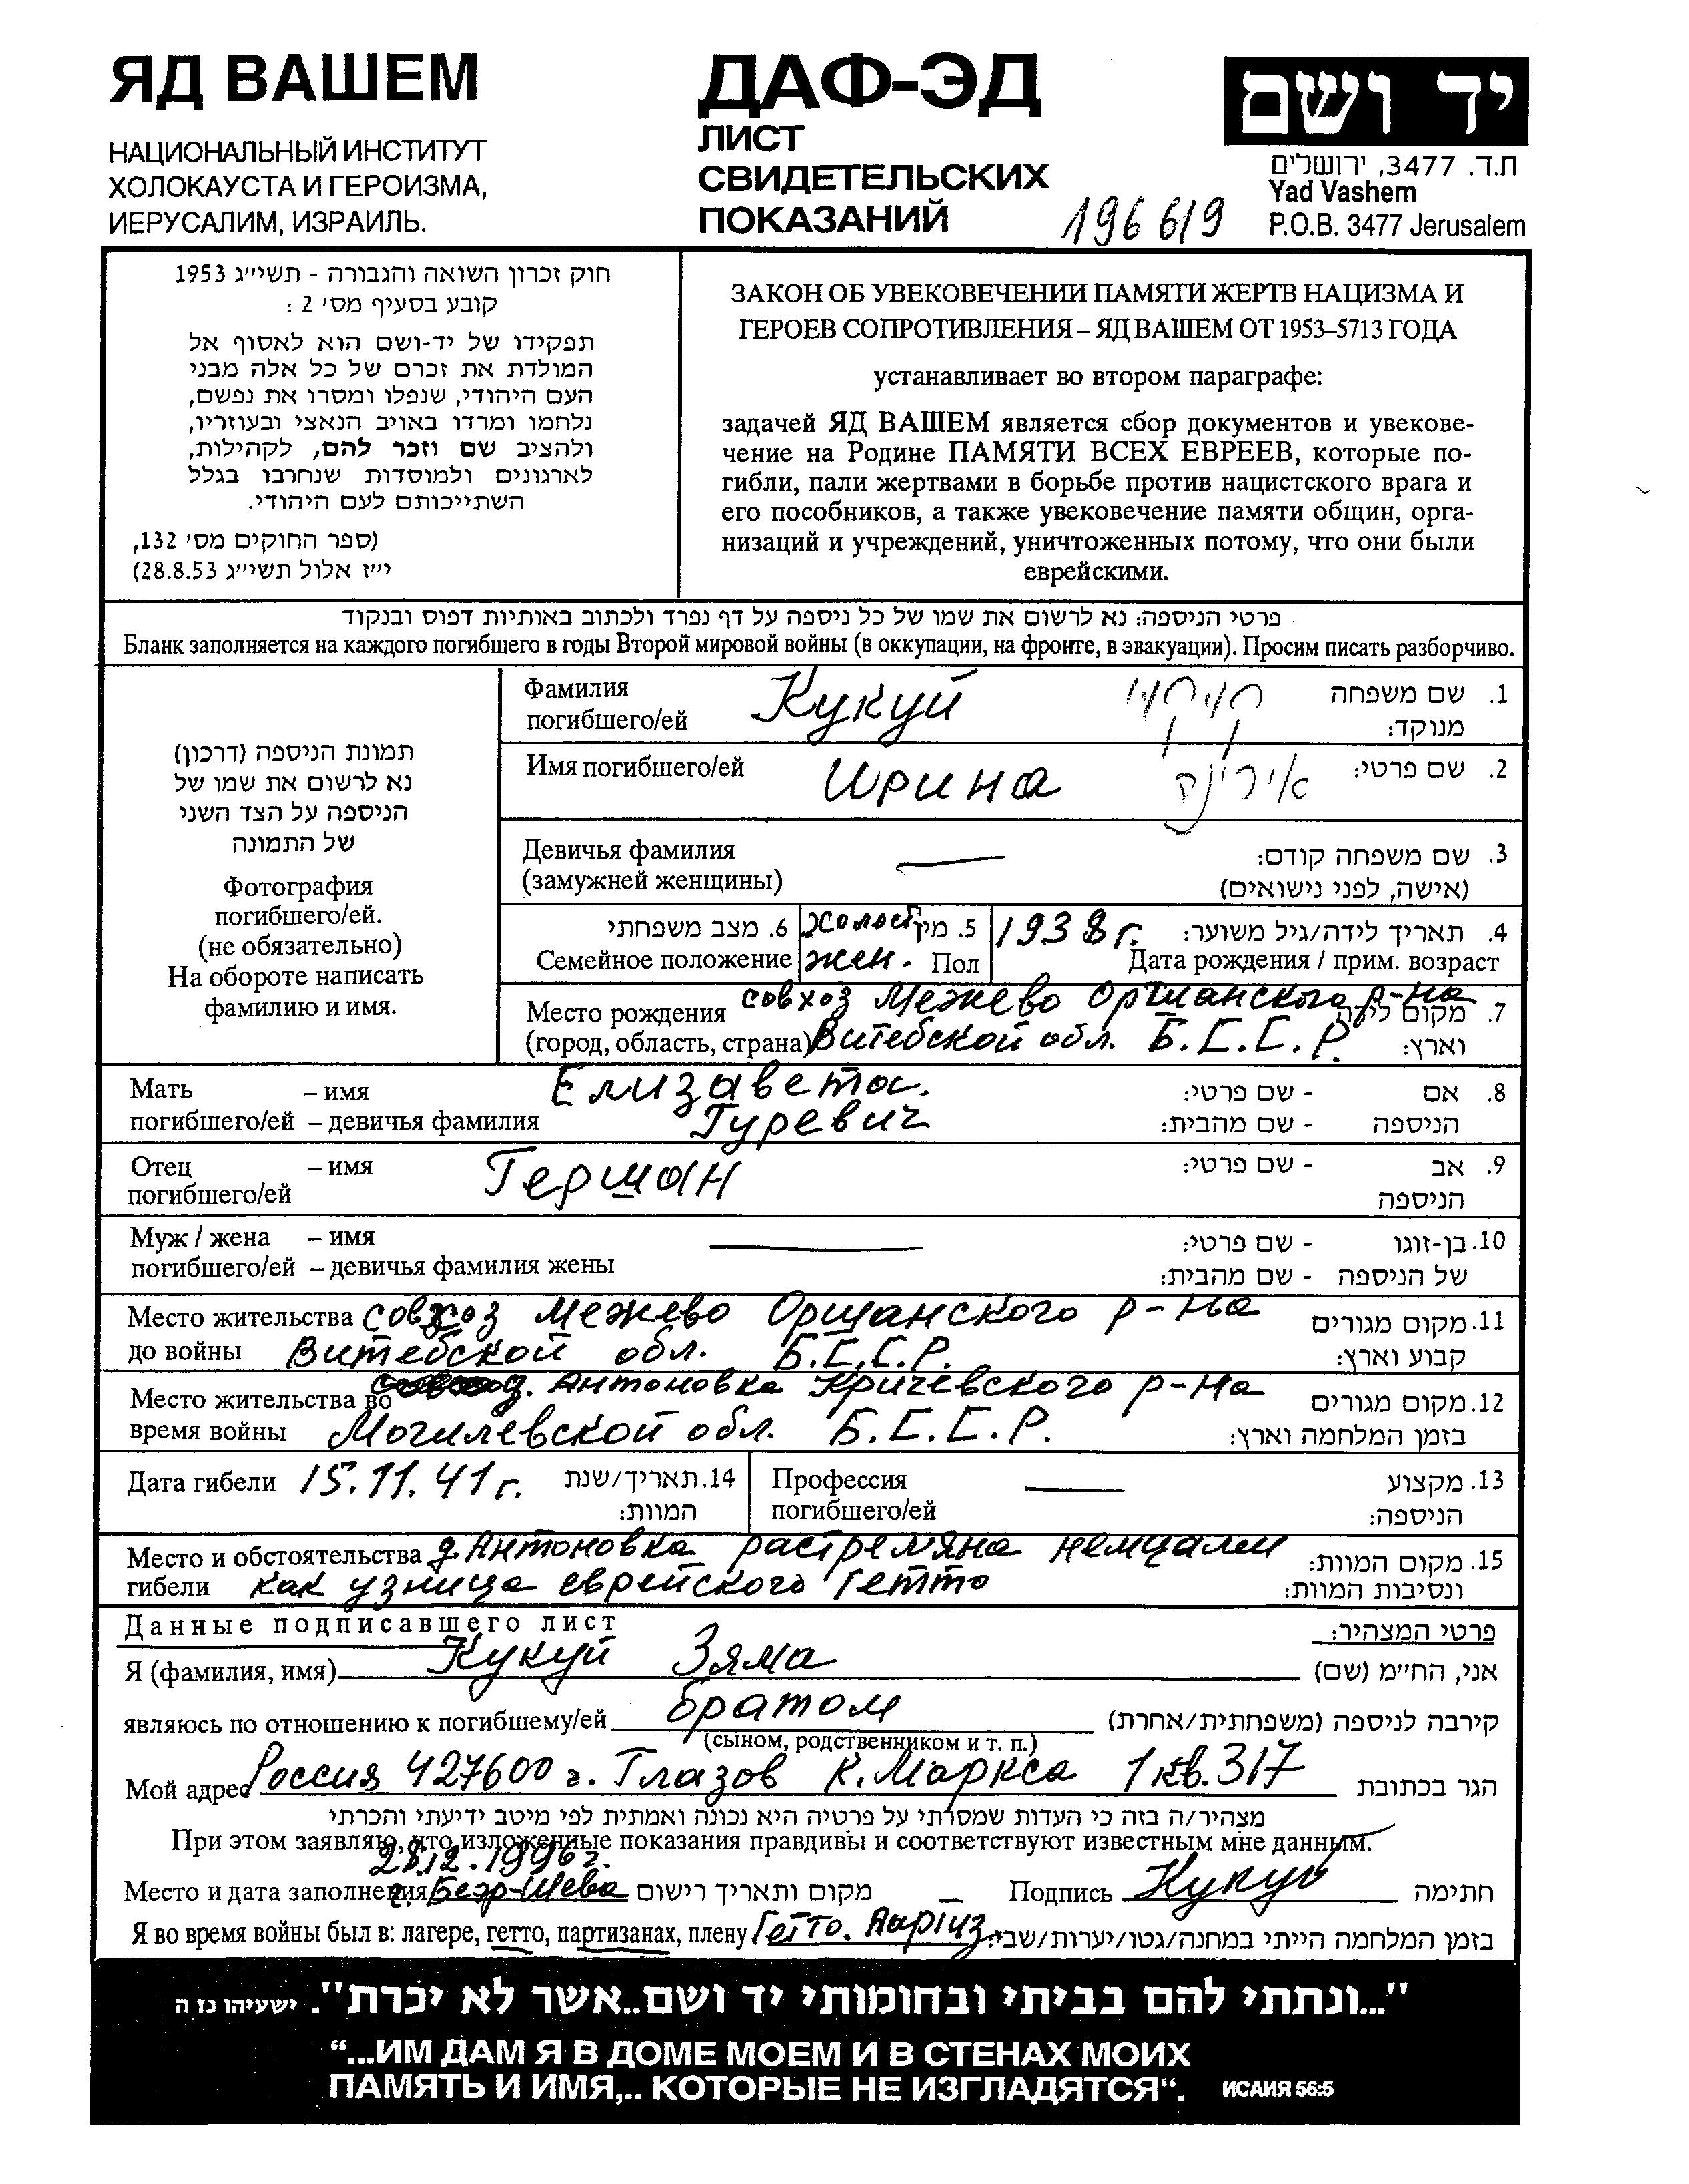 ЯД ВАШЕМ
НАЦИОНАЛЬНЫЙ ИНСТИТУТ
ХОЛОКАУСТА И ГЕРОИЗМА,
ИЕРУСАЛИМ, ИЗРАИЛЬ.
ДАФ-ЭД
ЛИСТ
СВИДЕТЕЛЬСКИХ
ПОКАЗАНИЙ
196619
יד ושם
ת.ד. 3477, ירושלים
Yad Vashem
P.O.B. 3477 Jerusalem
חוק זכרון השואה והגבורה - תשי״ג 1953
קובע בסעיף מס׳ 2 :
תפקידו של יד-ושם הוא לאסוף אל
המולדת את זכרם של כל אלה מבני
העם היהודי, שנפלו ומסרו את נפשם,
נלחמו ומרדו באויב הנאצי ובעוזריו,
ולהציב שם וזכר להם, לקהילות,
לארגונים ולמוסדות שנחרבו בגלל
השתייכותם לעם היהודי.
(ספר החוקים מס׳ 132,
י״ז אלול תשי״ג 28.8.53)
ЗАКОН ОБ УВЕКОВЕЧЕНИИ ПАМЯТИ ЖЕРТВ НАЦИЗМА И
ГЕРОЕВ СОПРОТИВЛЕНИЯ – ЯД ВАШЕМ ОТ 1953–5713 ГОДА
устанавливает во втором параграфе:
задачей ЯД ВАШЕМ является сбор документов и увекове-
чение на Родине ПАМЯТИ ВСЕХ ЕВРЕЕВ, которые по-
гибли, пали жертвами в борьбе против нацистского врага и
его пособников, а также увековечение памяти общин, орга-
низаций и учреждений, уничтоженных потому, что они были
еврейскими.
פרטי הניספה: נא לרשום את שמו של כל ניספה על דף נפרד ולכתוב באותיות דפוס ובנקוד
Бланк заполняется на каждого погибшего в годы Второй мировой войны (в оккупации, на фронте, в эвакуации). Просим писать разборчиво.
תמונת הניספה (דרכון)
נא לרשום את שמו של
הניספה על הצד השני
של התמונה
Фотография
погибшего/ей.
(не обязательно)
На обороте написать
фамилию и имя.
Фамилия Кукуй קוקוי 1. שם משפחה
погибшего/ей מנוקד:
Имя погибшего/ей Ирина אירינה 2. שם פרטי:
Девичья фамилия 3. שם משפחה קודם:
(замужней женщины) (אישה, לפני נישואים)
6. מצב משפחתי холост 5. מין 1938 г. 4. תאריך לידה/גיל משוער:
Семейное положение жен. Пол Дата рождения / прим. возраст
Место рождения совхоз Межево Оршанского р-на 7. מקום לידה
(город, область, страна) Витебской обл. Б.С.С.Р. וארץ:
Мать – имя Елизавета. 8. אם - שם פרטי:
погибшего/ей – девичья фамилия Гуревич הניספה - שם מהבית:
Отец – имя Гершан 9. אב - שם פרטי:
погибшего/ей הניספה
Муж / жена – имя 10. בן-זוגו - שם פרטי:
погибшего/ей – девичья фамилия жены של הניספה - שם מהבית:
Место жительства совхоз Межево Оршанского р-на 11. מקום מגורים
до войны Витебской обл. Б.С.С.Р. קבוע וארץ:
Место жительства во д. Антоновка Кричевского р-на 12. מקום מגורים
время войны Могилевской обл. Б.С.С.Р. בזמן המלחמה וארץ:
Дата гибели 15.11.41 г. 14. תאריך/שנת המוות:
Профессия 13. מקצוע
погибшего/ей הניספה:
Место и обстоятельства д. Антоновка растреляна немцами 15. מקום המוות:
гибели как узница еврейского гетто ונסיבות המוות:
Данные подписавшего лист פרטי המצהיר:
Я (фамилия, имя) Кукуй Зяма אני, הח״מ (שם)
являюсь по отношению к погибшему/ей братом קירבה לניספה (משפחתית/אחרת)
(сыном, родственником и т. п.)
Мой адрес Россия 427600 г. Глазов К. Маркса 1 кв. 317 הגר בכתובת
מצהיר/ה בזה כי העדות שמסרתי על פרטיה היא נכונה ואמתית לפי מיטב ידיעתי והכרתי
При этом заявляю, что изложенные показания правдивы и соответствуют известным мне данным.
28.12.1996г.
Место и дата заполнения г. Беэр-Шева מקום ותאריך רישום Подпись Кукуй חתימה
Я во время войны был в: лагере, гетто, партизанах, плену Гетто. בזמן המלחמה הייתי במחנה/גטו/יערות/שבי:
"...ונתתי להם בביתי ובחומותי יד ושם..אשר לא יכרת". ישעיהו נז ה
“...ИМ ДАМ Я В ДОМЕ МОЕМ И В СТЕНАХ МОИХ
ПАМЯТЬ И ИМЯ,.. КОТОРЫЕ НЕ ИЗГЛАДЯТСЯ“. ИСАИЯ 56:5